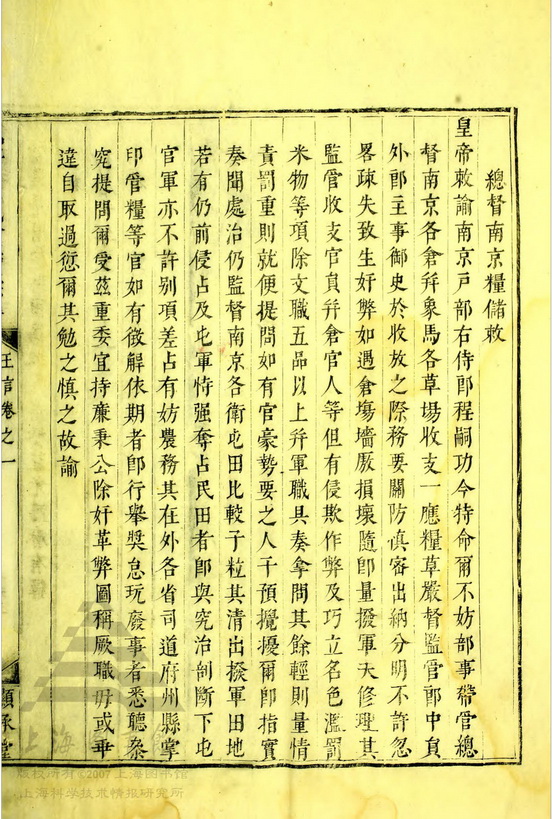 總督南京糧儲敕
皇帝敕諭南京戸部右侍郎程嗣功今特命爾不妨部事帶管總
督南京各倉并象馬各草場收支一應糧草嚴督監管郎中員
外郎主事御史於收放之際務要關防慎密出納分明不許忽
畧疎失致生奸弊如遇倉塲墻厫損壞隨卽量撥軍夫修理其
監管收支官員并倉官人等但有侵欺作弊及巧立名色濫罰
米物等項除文職五品以上并軍職具奏拿問其餘輕則量情
責罰重則就便提問如有官豪勢要之人干預攪擾爾卽指實
奏聞處治仍監督南京各衛屯田比較子粒其清出撥軍田地
若有仍前侵占及屯軍恃强奪占民田者卽與究治剖斷下屯
官軍亦不許别項差占有妨農務其在外各省司道府州縣掌
印管糧等官如有徵解依期者卽行舉獎怠玩廢事者悉聽叅
究提問爾受茲重委宜持廉秉公除奸革弊圖稱厥職毋或乖
違自取過愆爾其勉之慎之故諭
王言卷之一
順承堂
版权所有©2007上海图书馆
上海科学技术情报研究所